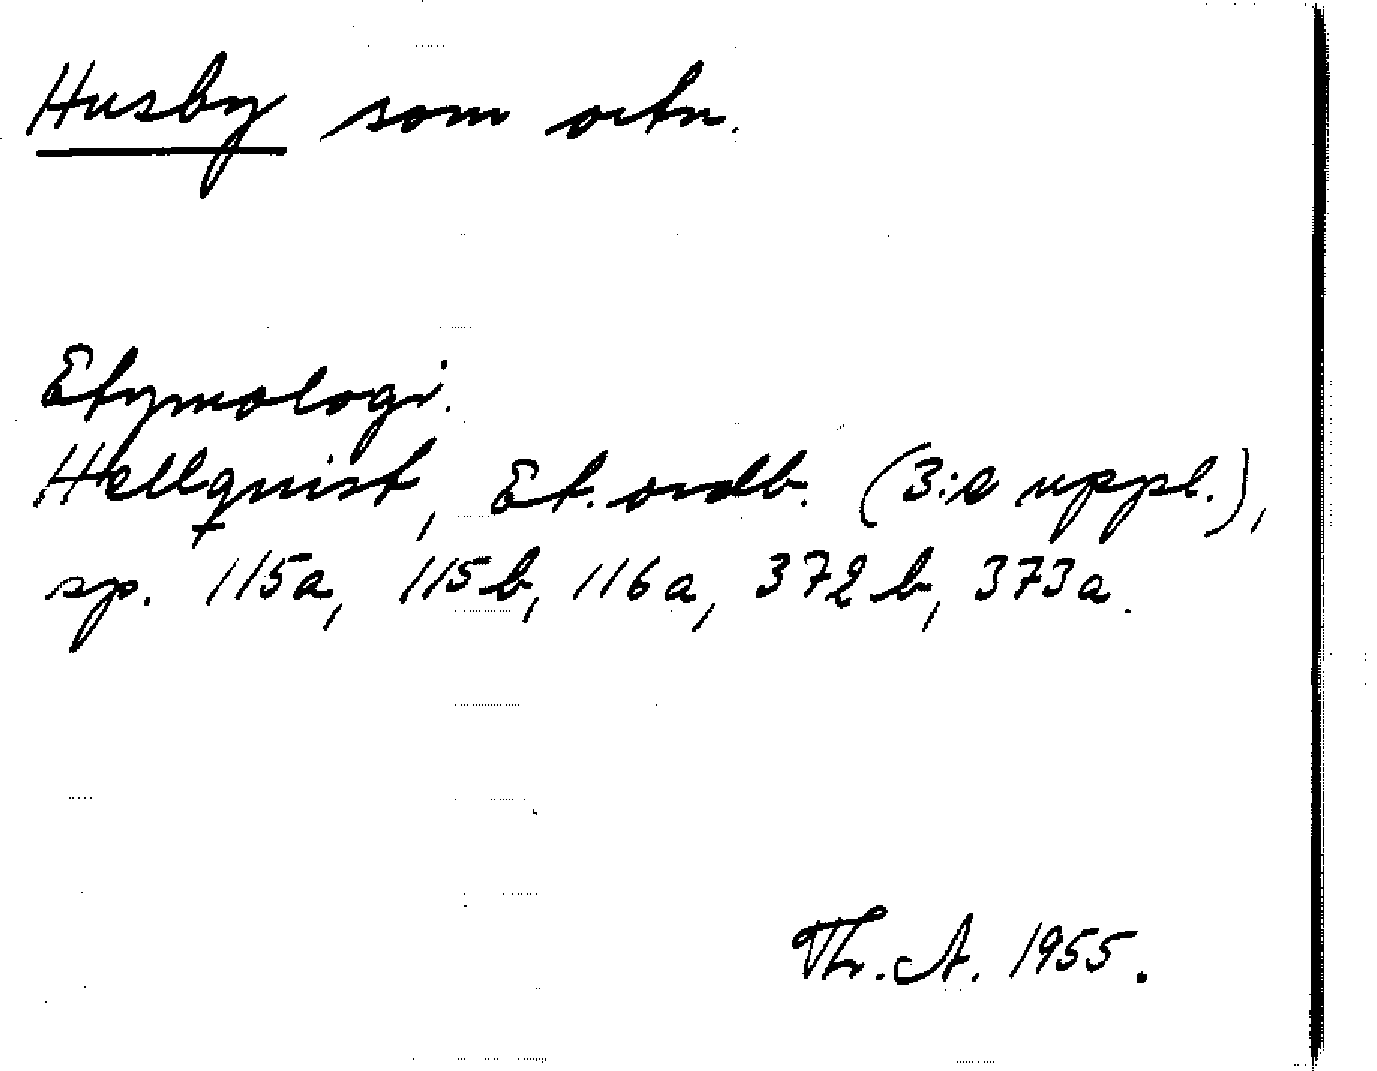 Husby som ortn.
Etymologi.
Hellquist, Et. ordb. (3:e uppl.),
sp. 115a, 115b, 116a, 372b, 373a.
Th. A. 1955.